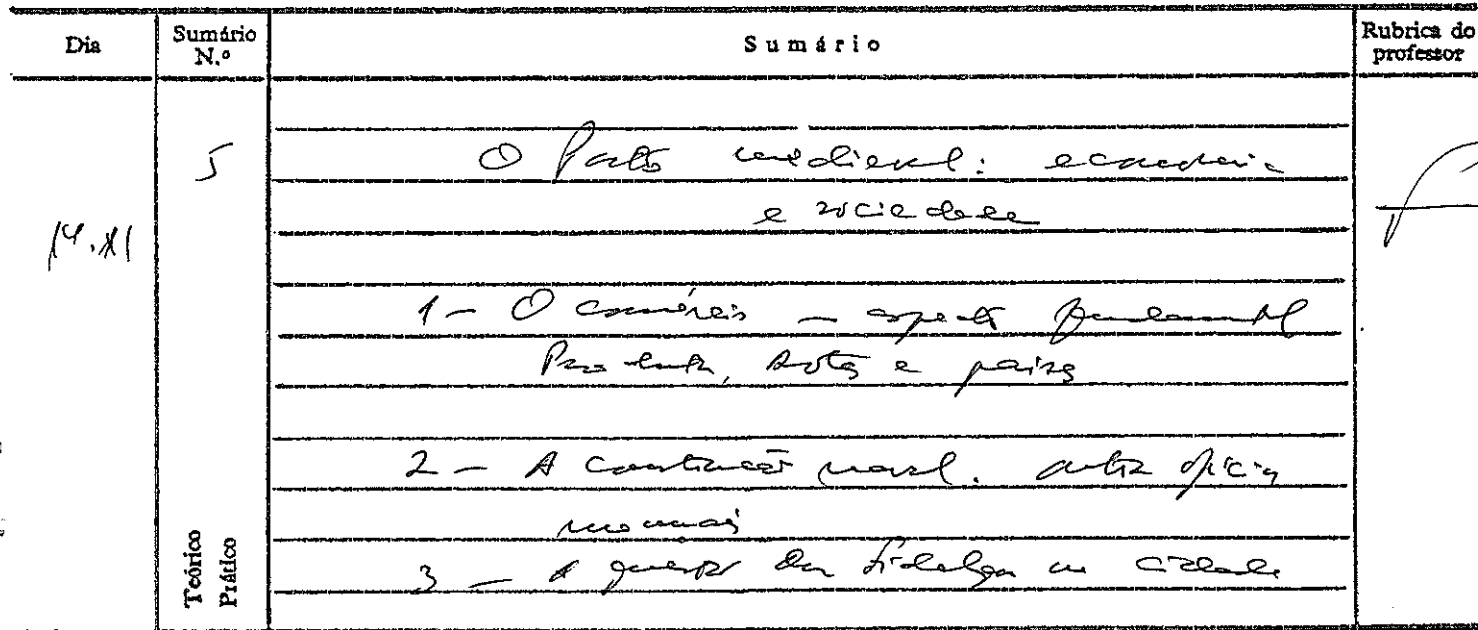 Dia
Sumário N.º
Sumário
Rubrica do professor
14.XI
5
O Porto medieval: economia
e sociedade
1 - O comércio - aspecto fundamental
Produtos, rotas e países
2 - A construção naval. Outros ofícios
mecanicos
3 - A questão dos fidalgos na cidade
Teórico
Prático